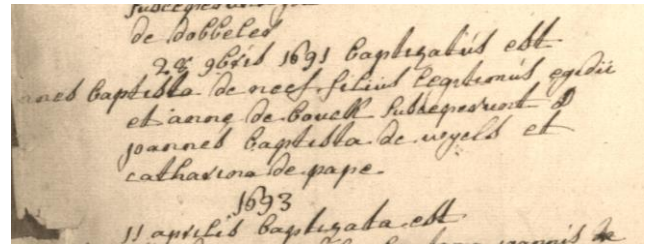 de dobbeler
28 9bris 1691 baptizatus est
baptista de neef filius legitimus egidii
et anne de bouck susceperunt
joannes baptista de wyels et
catharina de pape
1693
11 aprilis baptizata est